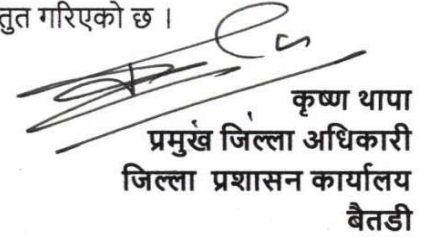 गरिएको छ ।
कृष्ण थापा
प्रमुख जिल्ला अधिकारी
जिल्ला प्रशासन कार्यालय
बैतडी